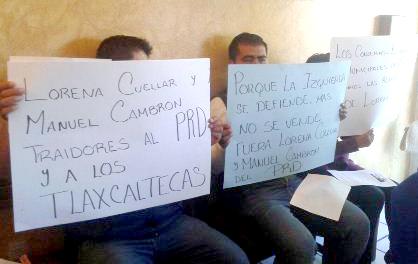 LORENA CUELLAR Y
MANUEL CAMBRON
TRAIDORES AL PRD
Y A LOS
TLAXCALTECAS
PORQUE LA IZQUIERDA
SE DEFIENDE, MAS
NO SE VENDE,
FUERA LORENA CUELLAR
Y MANUEL CAMBRON
DEL PRD
LOS
DE LORENA